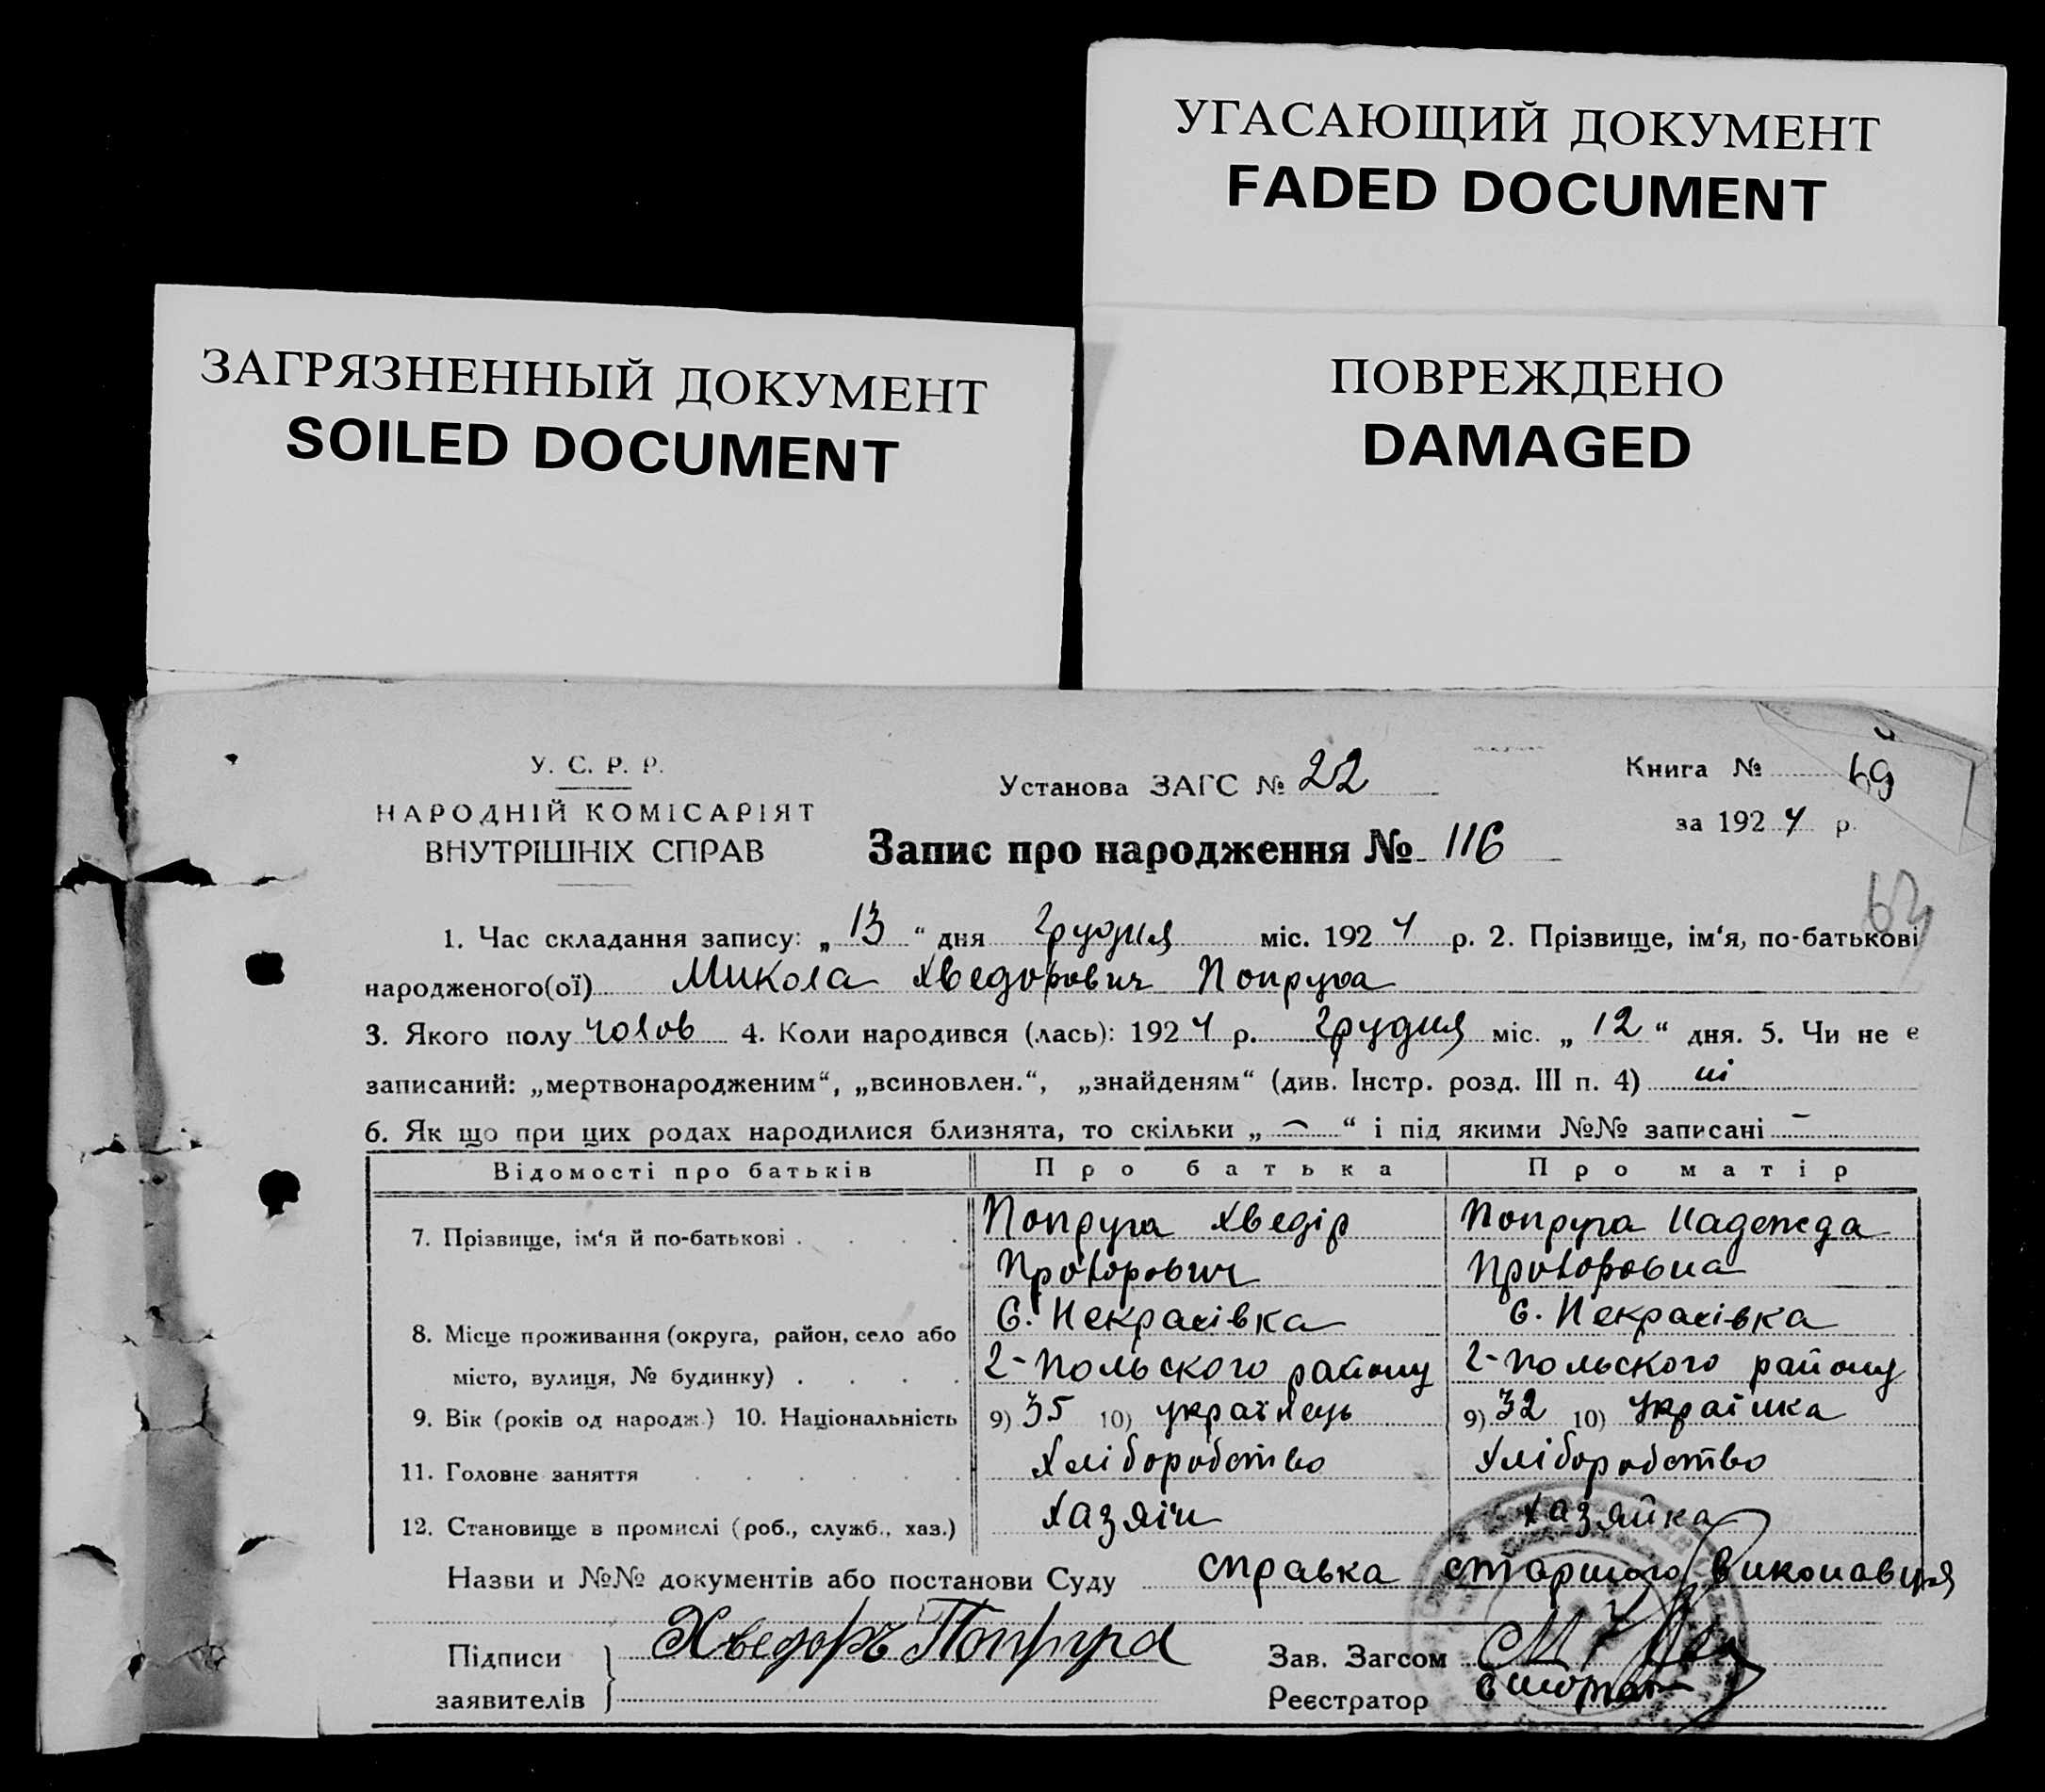 УГАСАЮЩИЙ ДОКУМЕНТ
FADED DOCUMENT
ЗАГРЯЗНЕННЫЙ ДОКУМЕНТ
SOILED DOCUMENT
ПОВРЕЖДЕНО
DAMAGED
У. С. Р. Р.
НАРОДНІЙ КОМІСАРІЯТ
ВНУТРІШНІХ СПРАВ
Установа ЗАГС № 22
Запис про народження № 116
Книга №
за 1924 р.
1. Час складання запису: „13“ дня грудня міс. 1924 р. 2. Прізвище, ім‘я, по-батькові
народженого(ої) Микола Хведорович Попруга
3. Якого полу чолов 4. Коли народився (лась): 1924 р. грудня міс. „12“ дня. 5. Чи не є
записаний: „мертвонародженим“, „всиновлен.“, „знайденям“ (див. Інстр. розд. III п. 4) ні
6. Як що при цих родах народилися близнята, то скільки „ — “ і під якими №№ записані —
Відомості про батьків Про батька Про матір
7. Прізвище, ім‘я й по-батькові . . . . Попруга Хведір Попруга Надежда
Прохорович Прохоровна
С. Некрасівка с. Некрасівка
8. Місце проживання (округа, район, село або
місто, вулиця, № будинку) . . . . 2-польского району 2-польского району
9. Вік (років од народж.) 10. Національність 9) 35 10) українець 9) 32 10) Українка
11. Головне заняття . . . . . . Хліборобство Хліборобство
12. Становище в промислі (роб., служб., хаз.) Хазяін Хазяйка
Назви и №№ документів або постанови Суду справка старшого виконавця
Підписи заявителів Хведоръ Попруга
Зав. Загсом
Реєстратор